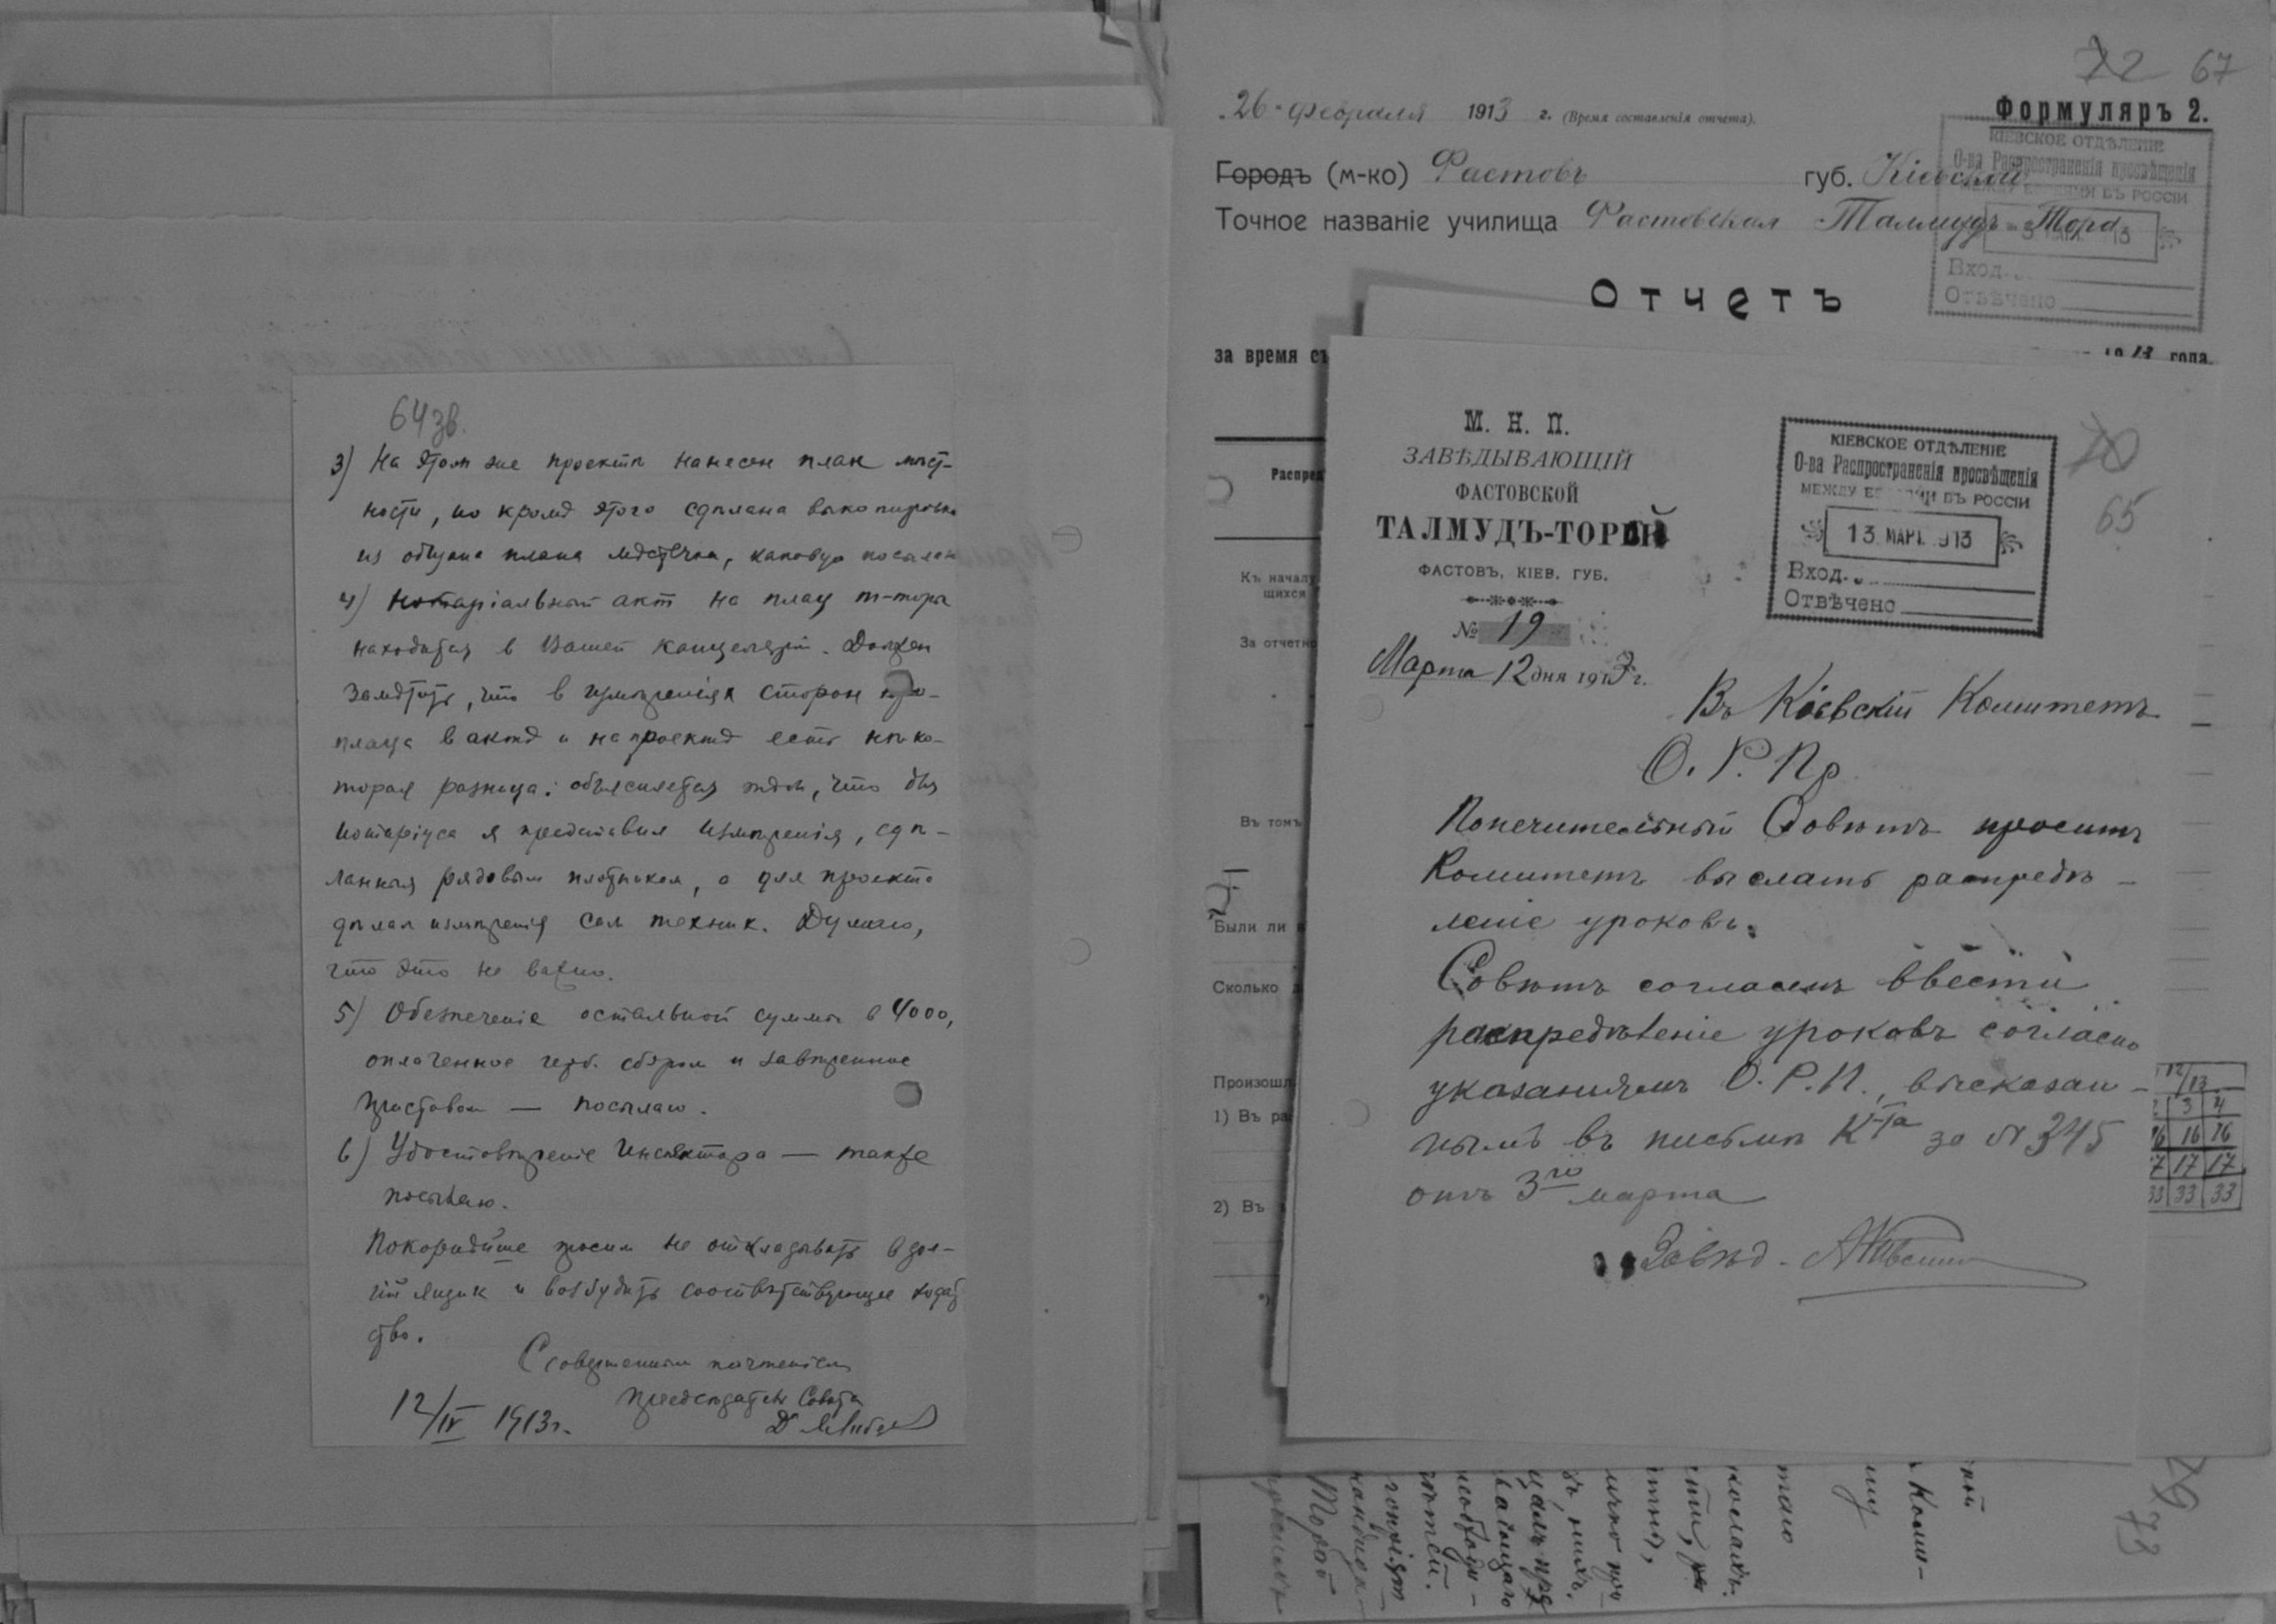 64 зв.
3) На этом же проектѣ нанесен план мѣст-
ности, но кромѣ этого сдѣлана выкопировка
из общаго плана мѣстечка, каковую посылаю
4) Нотаріальный акт на плац т-торы
находится в Вашей канцеляріи. Должен
замѣтить, что в измѣреніях сторон
плаца в актѣ и на проектѣ есть нѣко-
торая разница: объясняется тѣм, что для
нотаріуса я представил измѣренія, сдѣ-
ланныя рядовым плотником, а для проекта
дѣлал измѣренія сам техник. Думаю,
что это не важно.
5) Обезпеченіе остальной суммы в 4000,
оплаченное герб. сбором и завѣренное
приставом — посылаю.
6) Удостовѣреніе Инспектора — также
посылаю.
Покорнѣйше просим не откладывать в дол-
гій ящик и возбудить соотвѣтствующее ходат
ство.
С совершенным почтеніем
Предсѣдатель Совѣта
12/IV 1913 г.
72 67
26 февраля 1913 г. (Время составленія отчета).
Формуляръ 2.
Городъ (м-ко) Фастовъ губ. Кіевской
Точное названіе училища Фастовская Талмудъ-Тора
КІЕВСКОЕ ОТДѢЛЕНІЕ
О-ва Распространенія просвѣщенія
ВЪ РОССІИ
13
Вход.
Отвѣчено
Отчетъ
за время съ 1913 года.
Распред
Къ началу
щихся
За отчетно
Въ томъ
Были ли
Сколько
Произошл
1) Въ ра
2) Въ
М. Н. П.
ЗАВѢДЫВАЮЩІЙ
ФАСТОВСКОЙ
ТАЛМУДЪ-ТОРОЙ
ФАСТОВЪ, КІЕВ. ГУБ.
№ 19
Марта 12 дня 1913 г.
КІЕВСКОЕ ОТДѢЛЕНІЕ
О-ва Распространенія просвѣщенія
МЕЖДУ ЕВРЕЯМИ ВЪ РОССІИ
13 МАРТ 1913
Вход.
Отвѣчено
70
65
Въ Кіевскій Комитетъ
О. Р. Пр
Попечительный Совѣтъ проситъ
Комитетъ выслать распредѣ-
леніе уроковъ.
Совѣтъ согласенъ ввести
распредѣленіе уроковъ согласно
указаніямъ О. Р. П., высказан-
нымъ въ письмѣ К-та за № 345
отъ 3го марта
Завѣд.
12/13
3 4
16 16 16
17 17 17
33 33 33
Торой
73